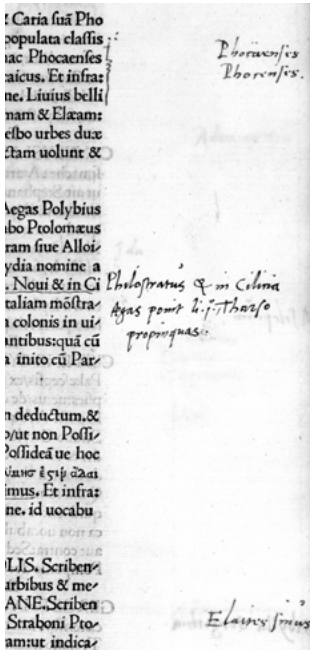 Caria suã Pho
populata classis
hac Phocaenses
aicus. Et infra:
ne. Liuius belli
mam & Elæam:
esbo urbes duæ
ctam uolunt &
Aegas Polybius
abo Ptolomæus
ram siue Alloi-
ydia nomine a
. Noui & in Ci
taliam mõstra-
a colonis in ui-
antibus:quã cũ
a inito cũ Par-
n deductum.&
o/ut non Possi-
Possideã ue hoc
imus. Et infra:
ne. id uocabu
LIS. Scriben-
urbibus & me-
ANE.Scriben
Straboni Pto-
am:ut indica-
Phocaensis
Phocensis.
Philostratus & in Cilicia
Aegas ponit li. j. Tharso
propinquas.